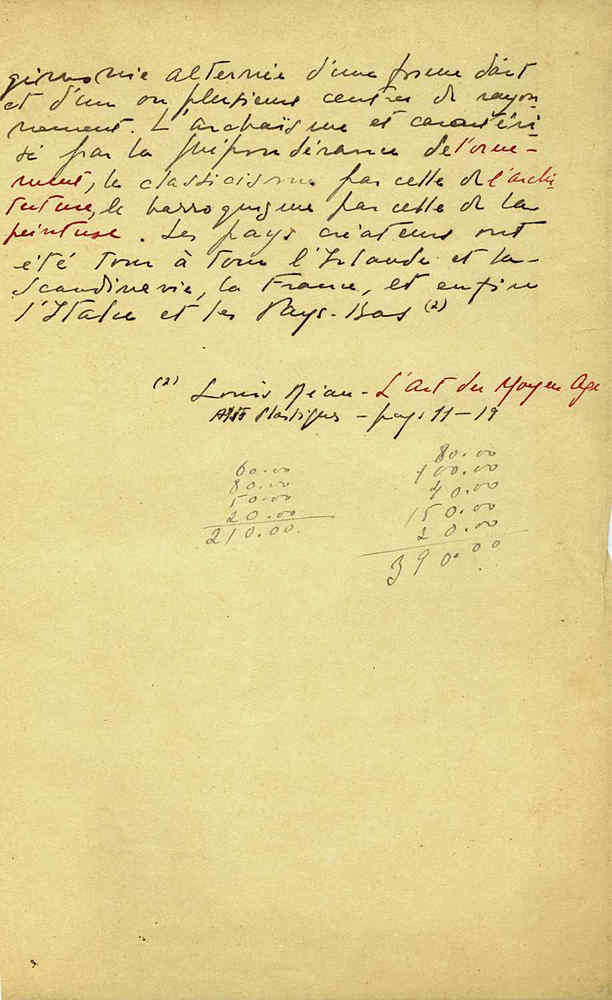 gémonie alternée d'une forme d'art
et d'un ou plusieurs centres de rayon-
nement. L'archaïsme est caractéri-
sé par la prépondérance de l'orne-
ment, le classicisme par celle de l'archi-
tecture, le barroquisme par celle de la
peinture. Les pays créateurs ont
été tour à tour l'Irlande et la
Scandinavie, la France, et enfin
l'Italie et les Pays-Bas (2)
(2) Louis Réau - L'Art du Moyen Age
Arts Plastiques - pags 11-19
60.00
80.00
50.00
20.00
210.00
80.00
100.00
40.00
150.00
20.00
390.00